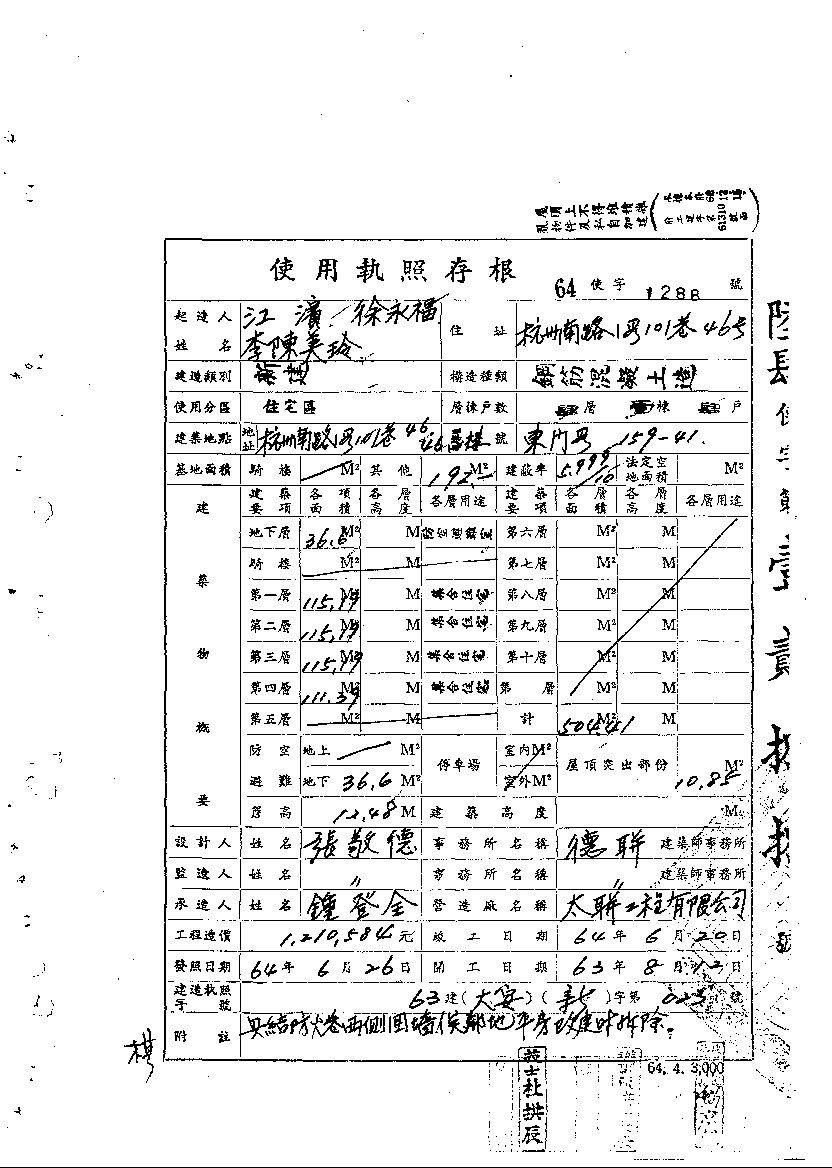 屋頂上不得堆積雜
物件及私自加建
使用執照存根
64 使字 1288 號
起造人姓名 江濱 徐永福 李陳美玲 住址 杭州南路1段101巷46号
建造類別 新建 構造種類 鋼筋混凝土造
使用分區 住宅區 層棟戶數 層 棟 戶
建築地點 地址 杭州南路1段101巷46 號 東門段 159-41.
基地面積 騎樓 M² 其他 192.- M² 建蔽率 5.999/10 法定空地面積 M²
建築物概要 建築要項 各項面積 各層高度 各層用途 建築要項 各層面積 各層高度 各層用途
地下層 36.6 M² M 第六層 M² M
騎樓 M² M 第七層 M² M
第一層 115.49 M² M 集合住宅 第八層 M² M
第二層 115.49 M² M 集合住宅 第九層 M² M
第三層 115.49 M² M 集合住宅 第十層 M² M
第四層 111.39 M² M 集合住宅 第 層 M² M
第五層 M² M 計 504.41 M² M
防空避難 地上 M² 停車場 室內M² 屋頂突出部份 10.85 M²
地下 36.6 M² 室外M²
簷高 12.48 M 建築高度 M
設計人 姓名 張敬德 事務所名稱 德聯 建築師事務所
監造人 姓名 〃 事務所名稱 〃 建築師事務所
承造人 姓名 鍾登全 營造廠名稱 太聯工程有限公司
工程造價 1,210,584 元 竣工日期 64 年 6 月 20 日
發照日期 64 年 6 月 26 日 開工日期 63 年 8 月 12 日
建造執照字號 63 建(大安)( )字第 025 號
附註 具結防火巷兩側圍墻俟鄰地平房改建時拆除。
64. 4. 3,000
技士杜拱辰